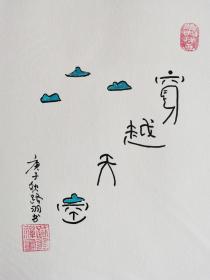 穿
越
天
空
庚子秋路洞书